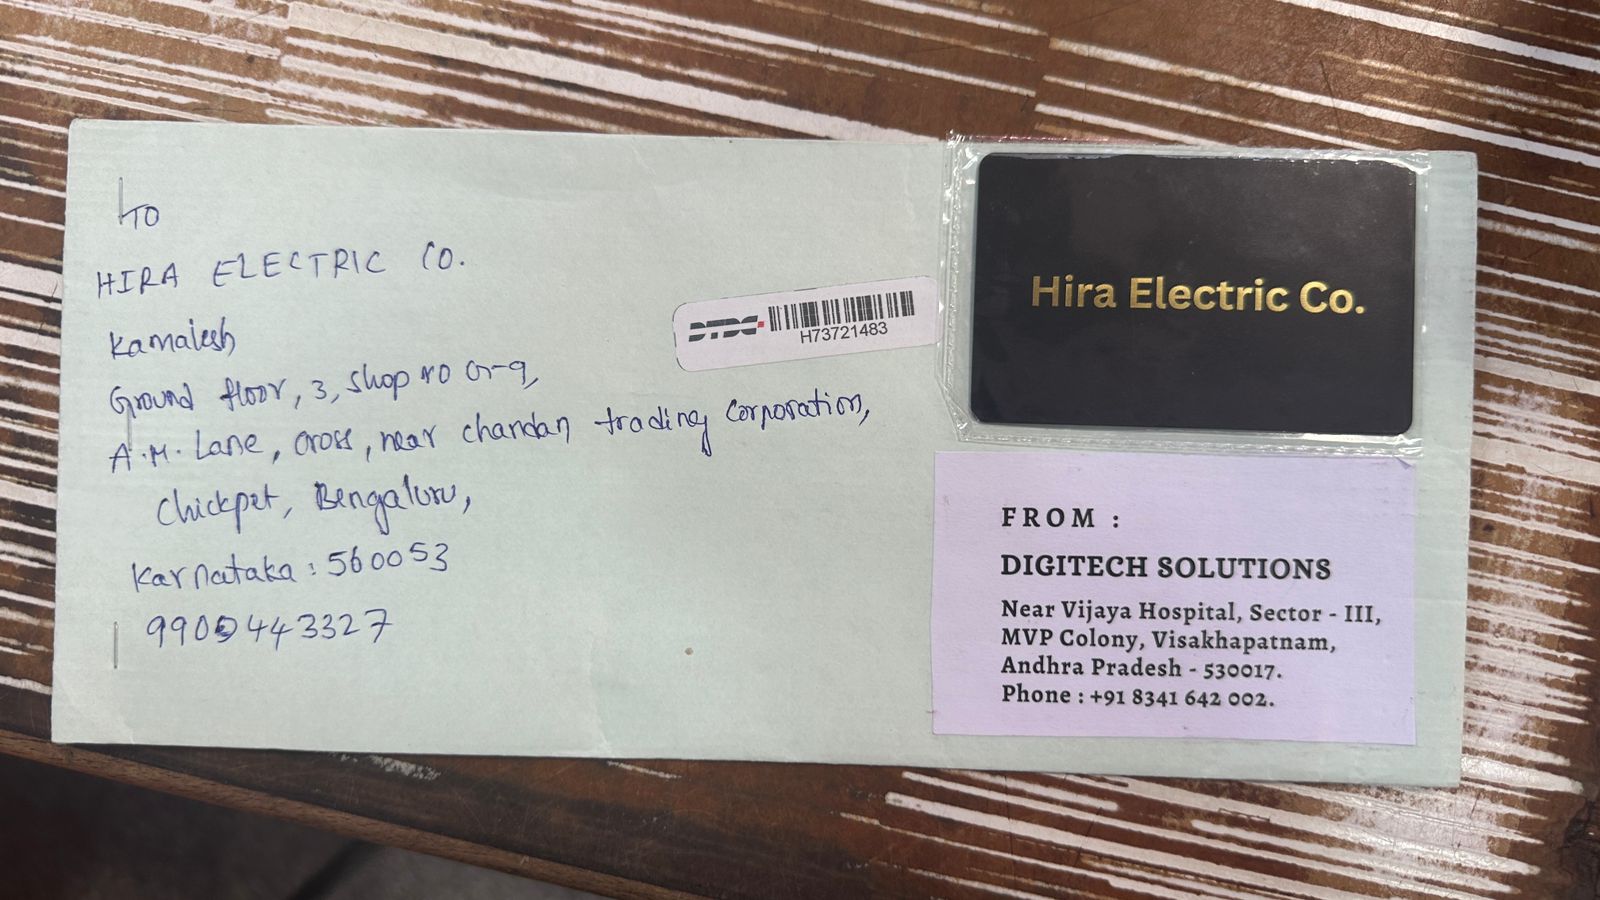 TO
HIRA ELECTRIC CO.
Kamalesh
Ground floor, 3, shop no G-9,
A.M. Lane, cross, near chandan trading corporation,
Chickpet, Bengaluru,
Karnataka : 560053
9900443327
DTDC
H73721483
Hira Electric Co.
FROM :
DIGITECH SOLUTIONS
Near Vijaya Hospital, Sector - III,
MVP Colony, Visakhapatnam,
Andhra Pradesh - 530017.
Phone : +91 8341 642 002.